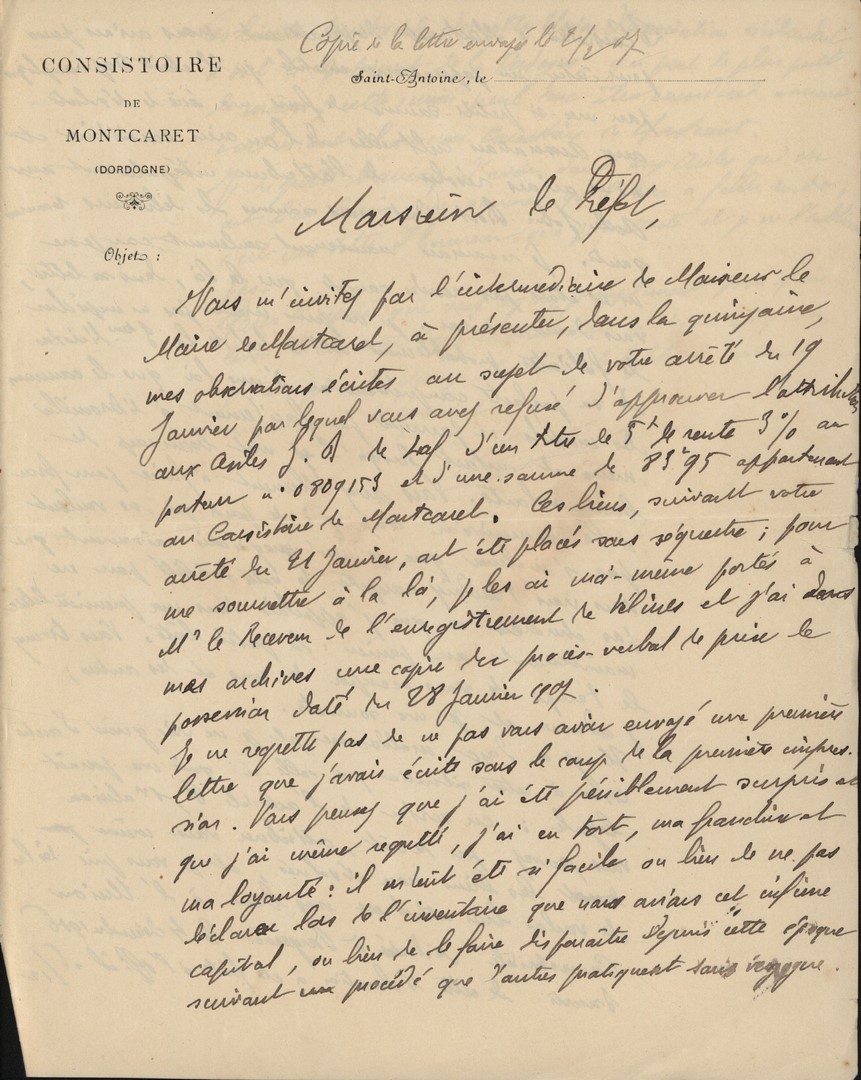 Copie de la lettre envoyé le 2/2 07
CONSISTOIRE
DE
MONTCARET
(DORDOGNE)
Saint-Antoine, le
Monsieur le Préfet,
Objet :
Vous m'invitez par l'intermédiaire de Monsieur le
Maire de Montcaret, à présenter, dans la quinzaine,
mes observations écrites au sujet de votre arrêté du 19
Janvier par lequel vous avez refusé d'approuver l'attribution
aux Asiles J. B de Laf d'un titre de 5f de rente 3% au
porteur n° 0809153 et d'une somme de 83f95 appartenant
au Consistoire de Montcaret. Ces biens, suivant votre
arrêté du 21 Janvier, ont été placés sous séquestre ; pour
me soumettre à la loi, je les ai moi-même portés à
Mr le Receveur de l'enregistrement de Vélines et j'ai dans
mes archives une copie du procès-verbal de prise de
possession daté du 28 Janvier 1907.
Je ne regrette pas de ne pas vous avoir envoyé une première
lettre que j'avais écrite sous le coup de la première impres-
sion. Vous pensez que j'ai été péniblement surpris et
que j'ai même regretté, j'ai eu tort, ma franchise et
ma loyauté : il m'eut été si facile ou bien de ne pas
déclarer lors de l'inventaire que nous avions cet infime
capital, ou bien de le faire disparaître depuis cette époque
suivant un procédé que d'autres pratiquent sans vergogne.